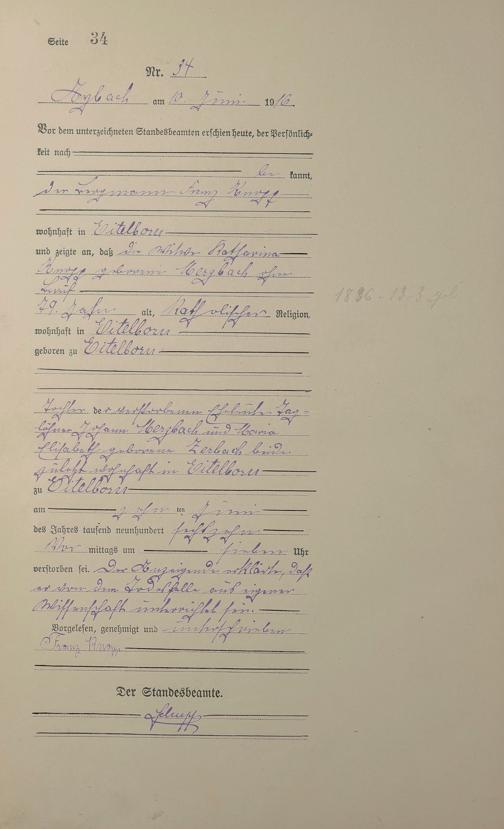 Seite 34
Nr. 34
Arzbach am 10. Juni 1916.
Vor dem unterzeichneten Standesbeamten erschien heute, der Persönlich-
keit nach
be kannt,
der Bergmann Franz Knopp
wohnhaft in Eitelborn
und zeigte an, daß die Witwe Katharina
Knopp geborene Merzbach ohne
Beruf
79 Jahre alt, Katholischer Religion,
wohnhaft in Eitelborn
geboren zu Eitelborn
Tochter der verstorbenen Eheleute Tag-
löhner Johann Merzbach und Maria
Elisabeth geborene Zerbach beide
zuletzt wohnhaft in Eitelborn
zu Eitelborn
am zehn ten Juni
des Jahres tausend neunhundert sechzehn
Vor mittags um sieben Uhr
verstorben sei. Der Anzeigende erklärte, daß
er von dem Todesfalle aus eigener
Wissenschaft unterrichtet sei.
Vorgelesen, genehmigt und unterschrieben
Franz Knopp
Der Standesbeamte.
1836 - 13.3. geb